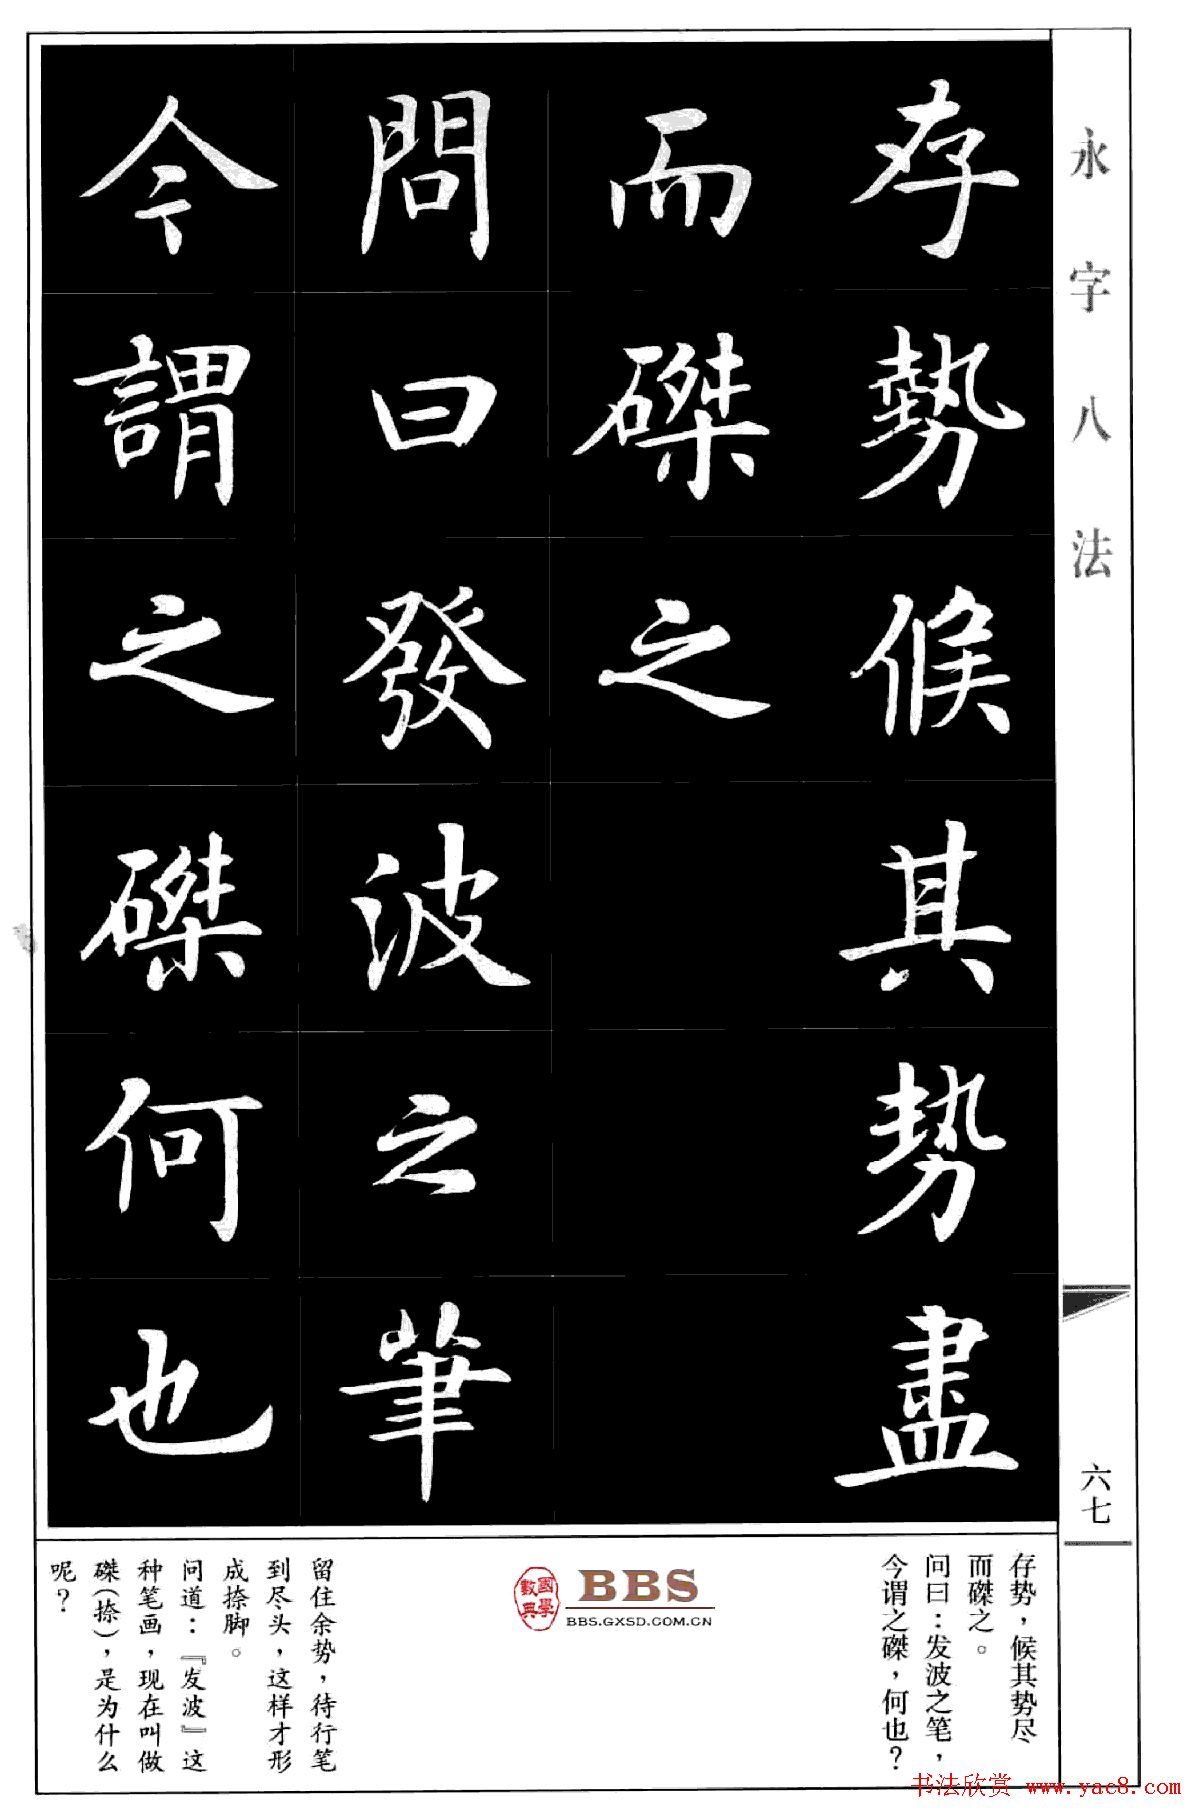 永字八法
六七
存勢候其势盡
而磔之
問曰發波之筆
今謂之磔何也
存势，候其势尽
而磔之。
问曰：发波之笔，
今谓之磔，何也？
國學
數典
BBS
BBS.GXSD.COM.CN
留住余势，待行笔
到尽头，这样才形
成捺脚。
问道：『发波』这
种笔画，现在叫做
磔（捺），是为什么
呢？
书法欣赏 www.yac8.com